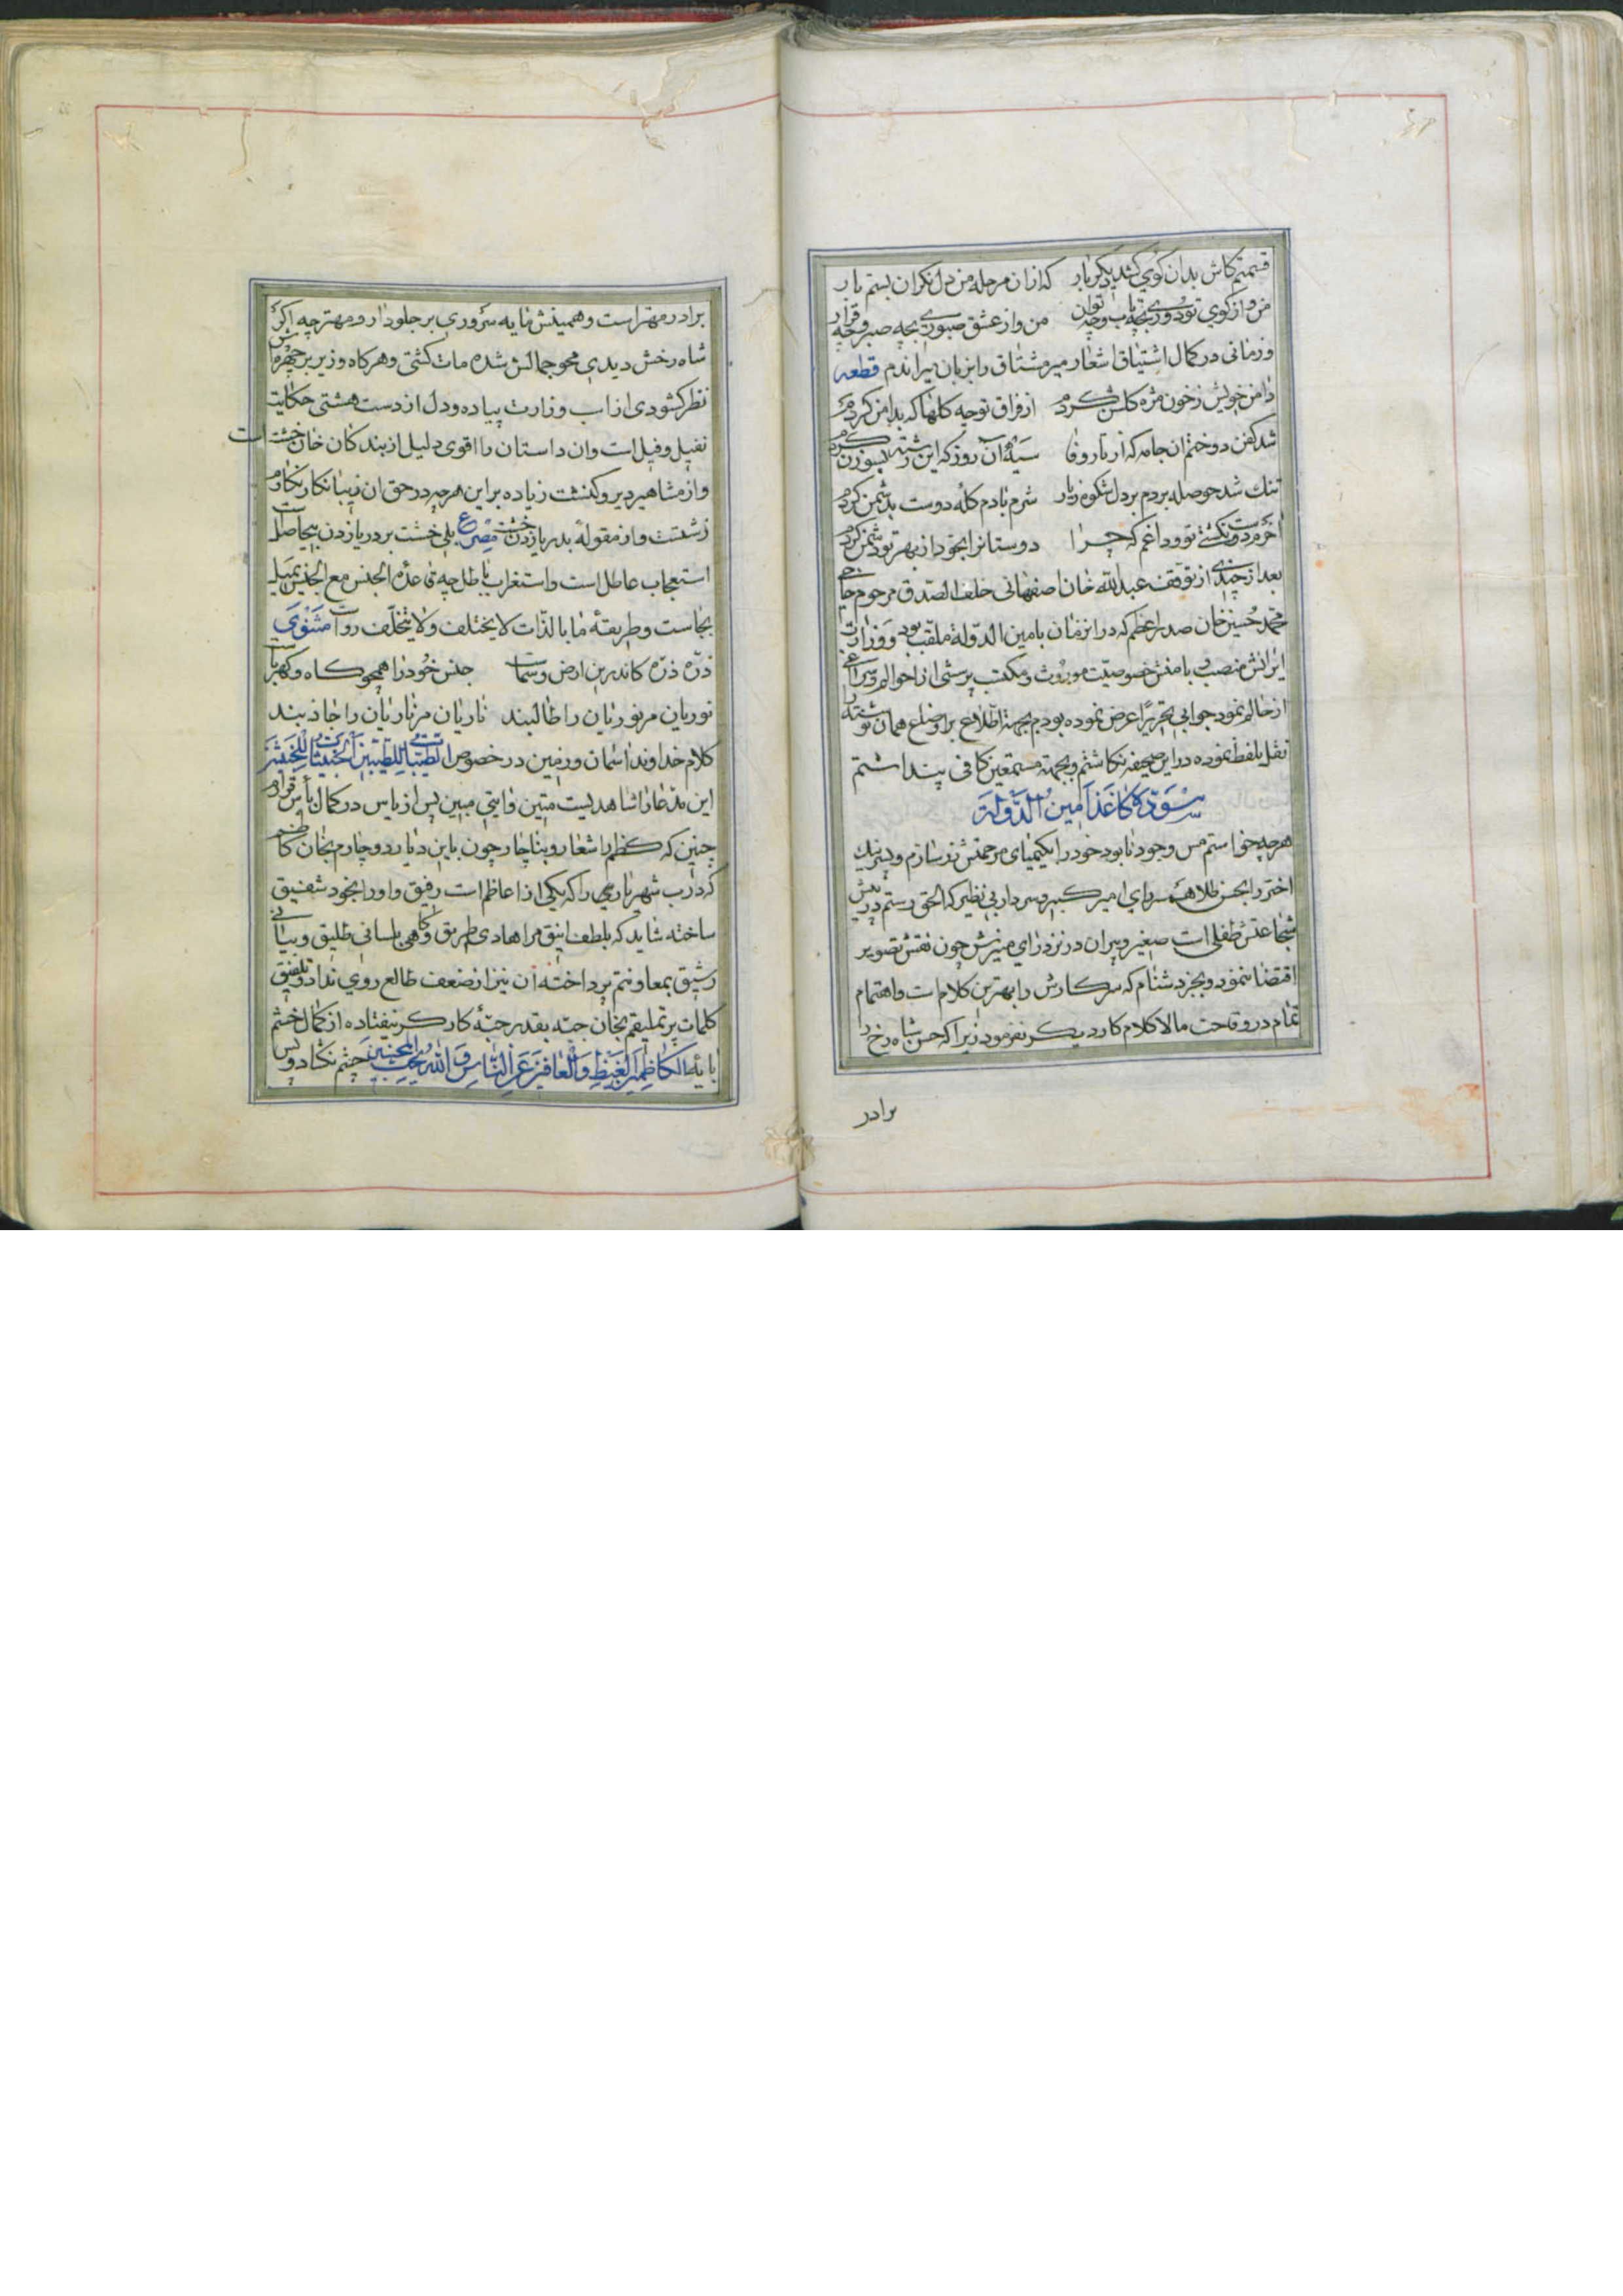 قسمتم کاش بدان کوی کشد دیکر بار که ازان مرحله من دل نکران بستم بار
من و از کوی تو دوری بچه تاب و چه توان من و از عشق صبوری بچه صبر و چه قرار
و زمانی در کمال اشتیاق اشعار میر مشتاق را بزبان میراندم قطعه
دامن خویش ز خون مژه کلشن کردم از فراق تو چه کلها که بدامن کردم
شد کفن دوختم ان جامه که از تار وفا سیه آن روز که این رشته بسوزن کردم
تنك شد حوصله بردم بر دل شکوه ز یار شرم بادم کله دوست بدشمن کردم
اخرم دوست نکشتی تو و داغم که چرا دوستانرا بخود از بهر تو دشمن کردم
بعد از چندی از توقف عبدالله خان اصفهانی خلف الصدق مرحوم حاجی
محمد حسین خان صدر اعظم که در انزمان بامین الدوله ملقب بود و وزارت
ایرانش منصب و با منش خصوصیت موروث و مکتب پرسشی از احوالم و سراغی
از حالم نمود جوابی تحریرًا عرض نموده بودم بجهة اطلاع بر اوضاع همان نوشته را
نقل بلفظ نموده در این صحیفه نکاشتم و بجهة مستمعین کافی پنداشتم
سوّده کاغذ امین الدّولة
هر چه خواستم مس وجود نابود خود را بکیمیای مرحمتش زر سازم و
اختر را بحسن طلا هم سرای امیر کبیر و سردار بی نظیر که الحق رستم در پیش
شجاعتش طفلی است صغیر و پیران در نزد رای منیرش چون نقش تصویر
اقتضا ننمود و بجز دشنام که سرکارش را بهترین کلام است و اهتمام
تمام در وقاحت مالا کلام کار دیکر نفرمود زیرا که حسن شاه رخ را
برادر
برادر مهتر است و همینش مایه سروری بر جلودار و مهتر چه اکر
شاه رخش دیدی محو جمالش شده مات کشتی و هر کاه وزیر بر چهره اش
نظر کشودی از اب وزارت پیاده و دل از دست هشتی حکایت
نفیل و فیل است وان داستان را اقوی دلیل از بند کان خان خشت است
و از مشاهیر دیر و کنشت زیاده بر این هر چه در حق ان زیبا نکار نکارم
زشتست و از مقوله بدر یا زدن خشت مصرع بلی خشت بر دریا زدن بیحاصل است
استعجاب عاطل است و استغراب باطل چه قاعده الجنس مع الجنس یمیل
بجاست و طریقهٔ ما بالذّات لا یختلف و لا یتخلّف رواست مثنوی
ذرّه ذرّه کاندرین ارض و سماست جنس خود را همچو کاه و کهرباست
نوریان مر نوریان را طالبند ناریان مر ناریان را جاذبند
کلام خداوند اسمان و زمین در خصوص الطیّبات للطیّبین الخبیثات للخبیثین
این مدّعا را شاهدیست متین و ایتی مبین پس از یاس در کمال یأس قرار
چنین که کظم را شعار و بناچار چون باین دیار دوچارم بخان کاظم
که دارب شهریاری را که یکی از اعاظم است رفیق و اورا بخود شفیق
ساخته شاید که بلطف انیق مرا هادی طریق و کاهی بلسانی طلیق و بیانی
رشیق بمعاونتم پرداخته آن نیز از ضعف طالع روی نداد و تلفیق
کلمات پر تملیقم بخان جبّه بقدر حبّهٔ کار کر نیفتاده از کمال خشم
بایه الکاظمین الغیظ و العافین عن النّاس و الله یحب المحسنین چشم نکشاد و پس